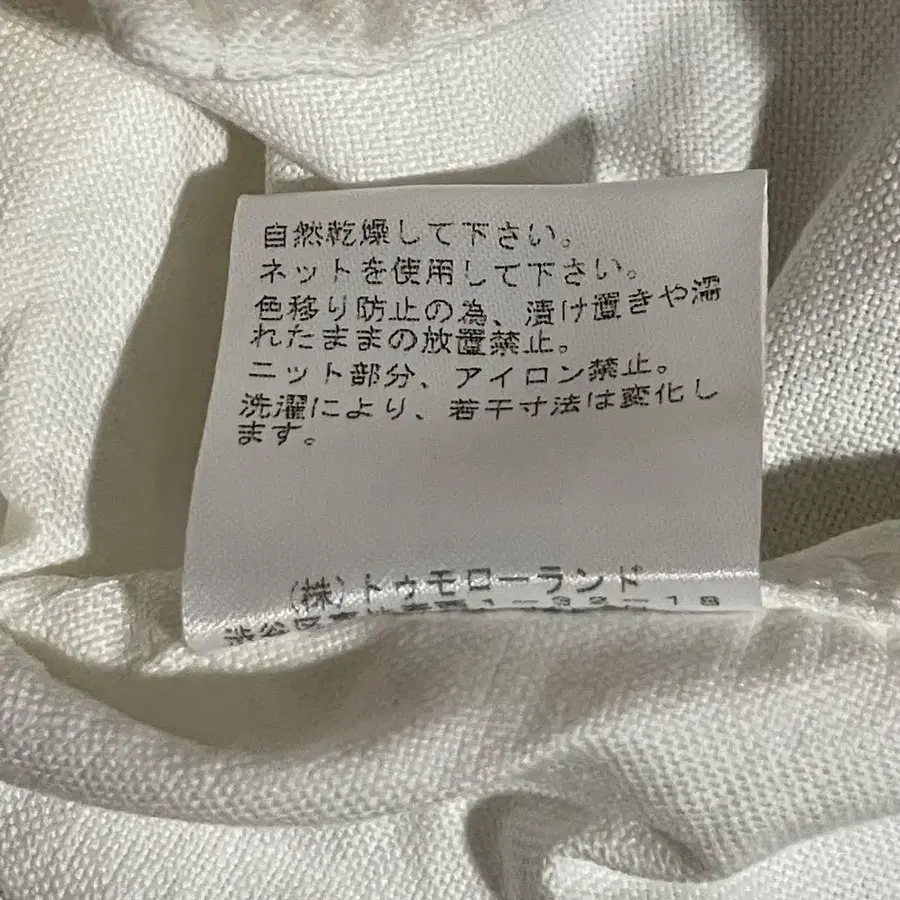 自然乾燥して下さい。
ネットを使用して下さい。
色移り防止の為、漬け置きや濡
れたままの放置禁止。
ニット部分、アイロン禁止。
洗濯により、若干寸法は変化し
ます。
(株)トゥモローランド
渋谷区 1-32-18